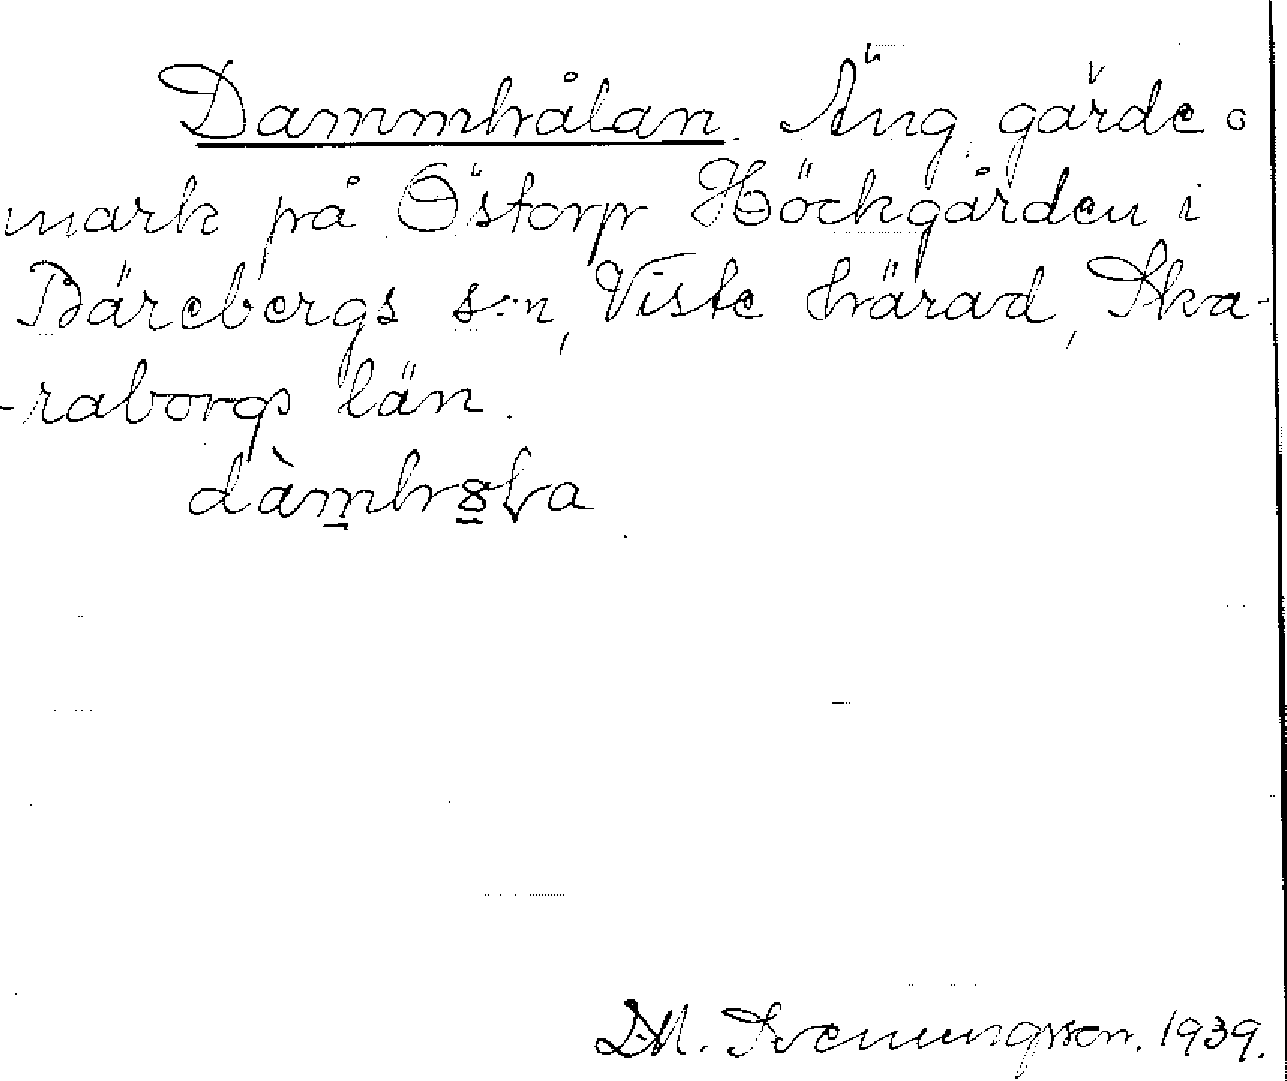 Dammhålan. Äng, gärde o
mark på Östorp Höckgården i
Bärebergs s:n, Viste härad, Ska-
-raborgs län.
D.M. Svenungsson. 1939.